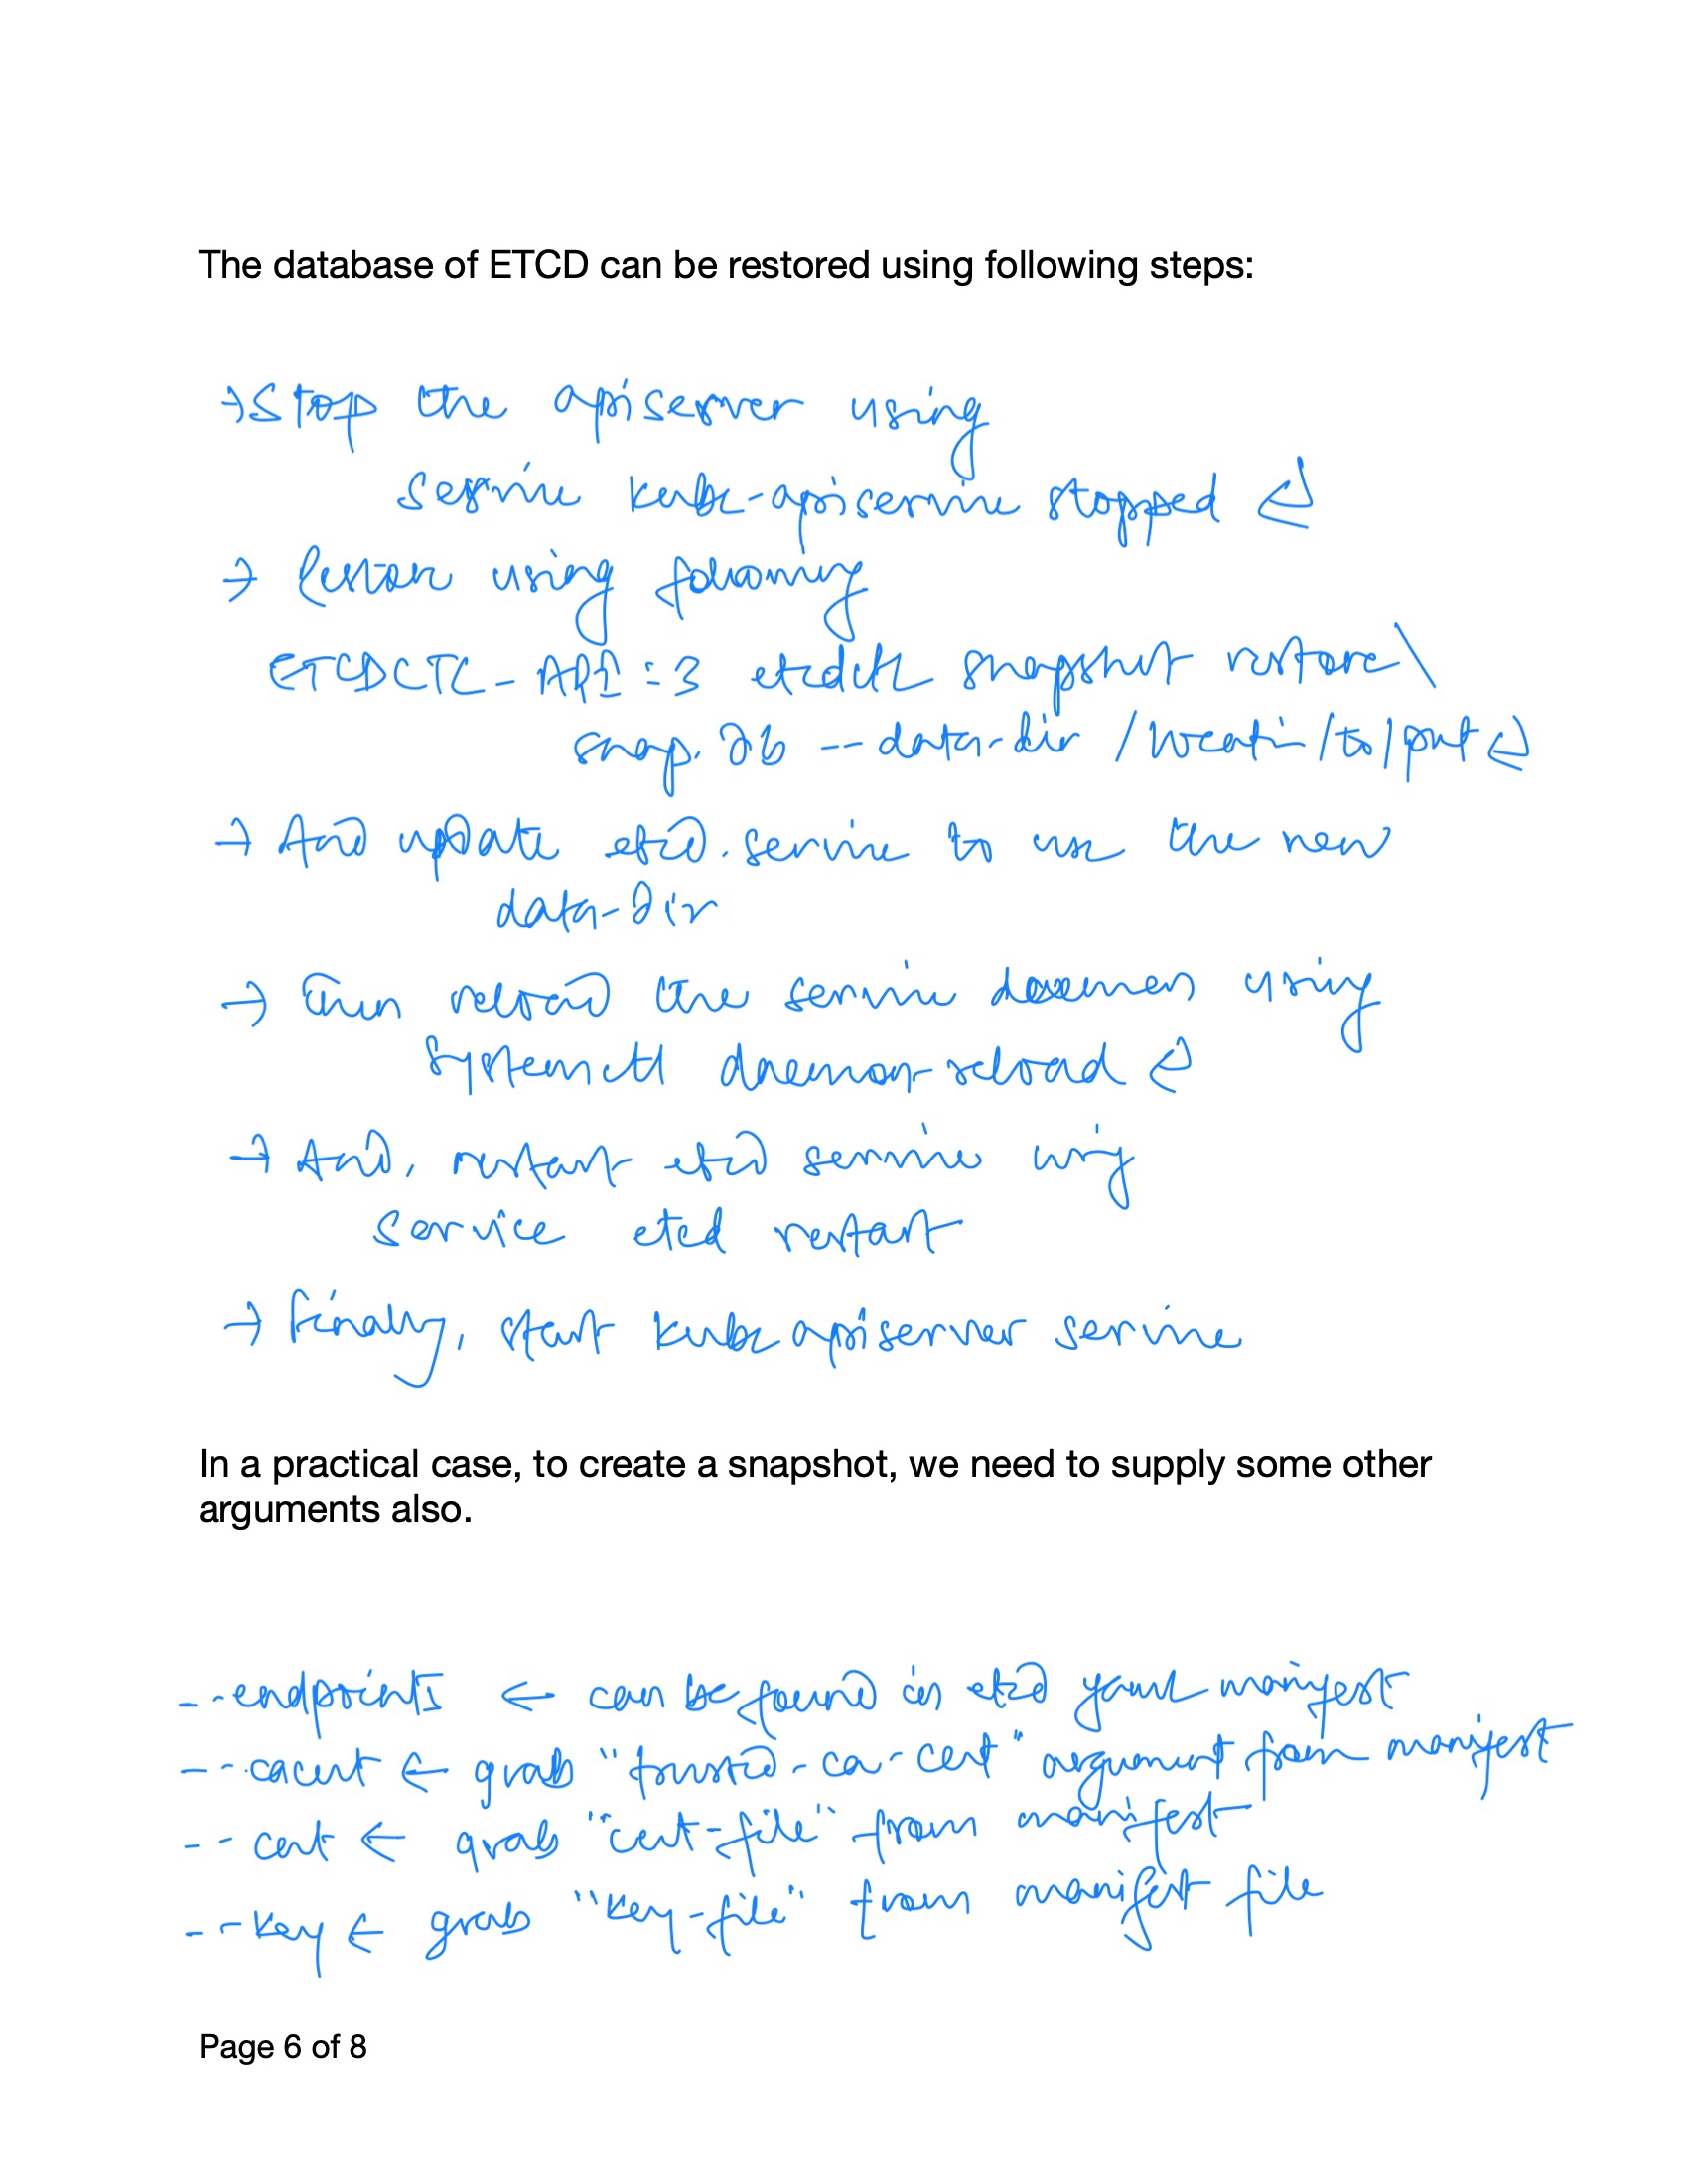 The database of ETCD can be restored using following steps:
→ Stop the apiserver using
service kube-apiservice stopped ↵
→ Restore using following
ETCDCTL_API=3 etcdctl snapshot restore \
snap.db --data-dir /location/to/put ↵
→ And update etcd.service to use the new
data-dir
→ Then reload the service daemon using
systemctl daemon-reload ↵
→ And, restart etcd service using
service etcd restart
→ Finally, start kube apiserver service
In a practical case, to create a snapshot, we need to supply some other
arguments also.
--endpoints ← can be found in etcd yaml manifest
--cacert ← grab "trusted-ca-cert" argument from manifest
--cert ← grab "cert-file" from manifest
--key ← grab "key-file" from manifest file
Page 6 of 8